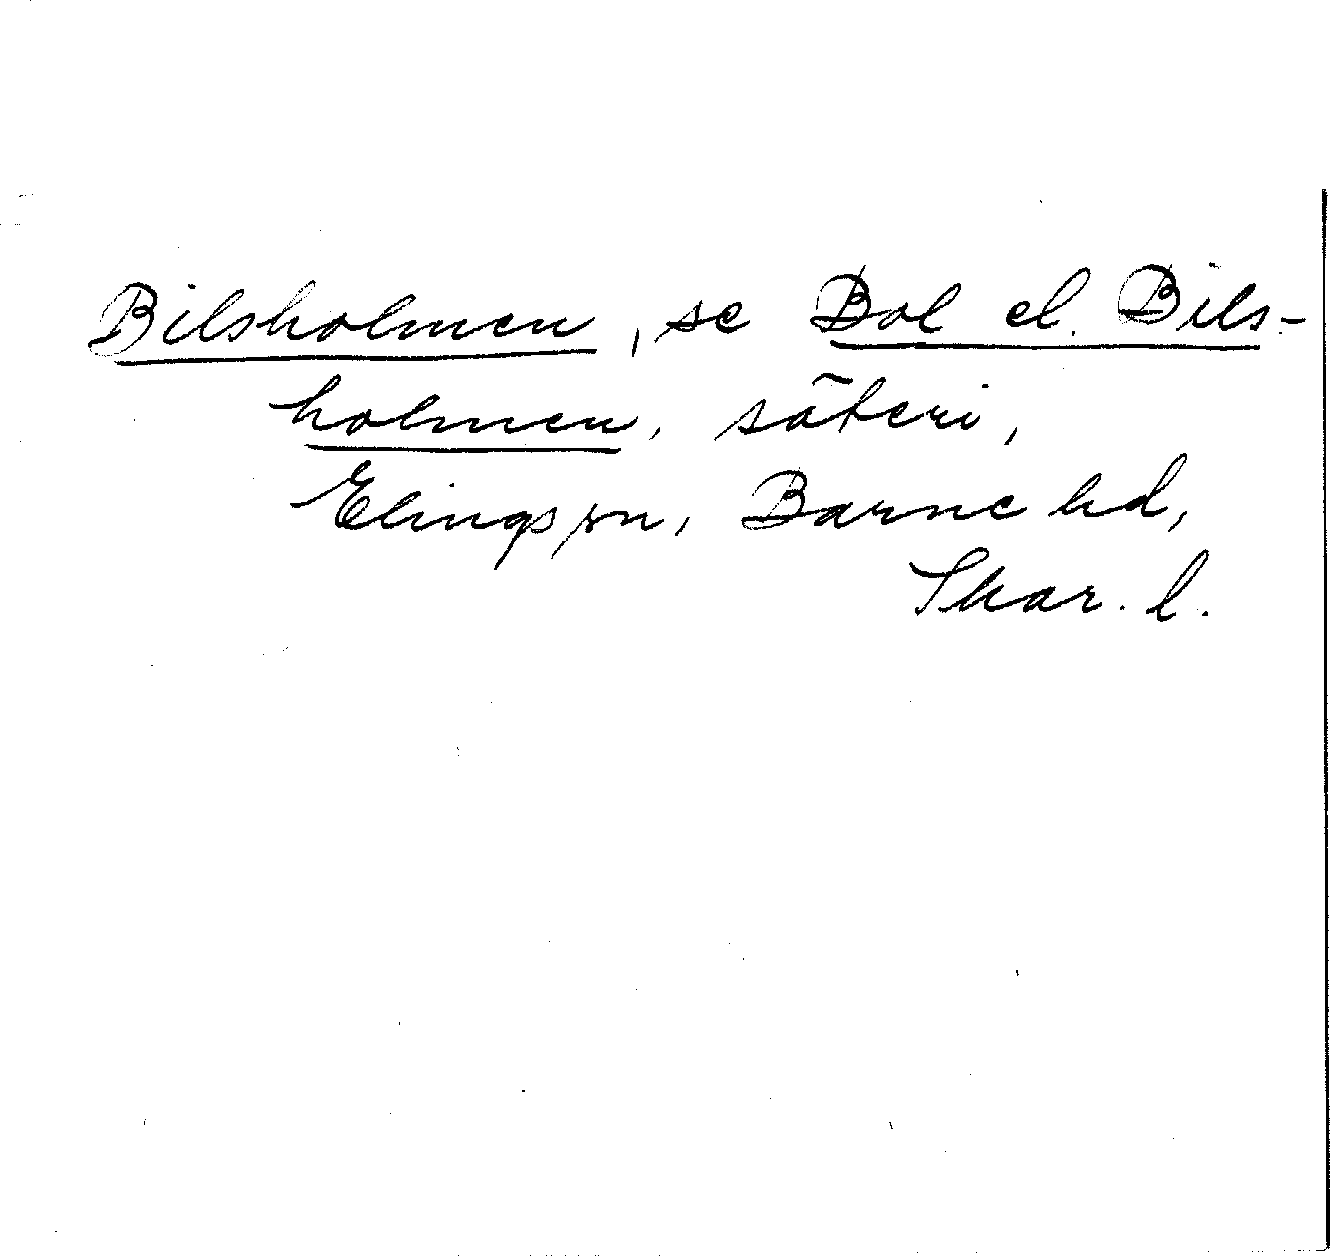 Bilsholmen, se Bol el. Bils-
holmen, säteri,
Elings sn, Barne hd,
Skar. l.